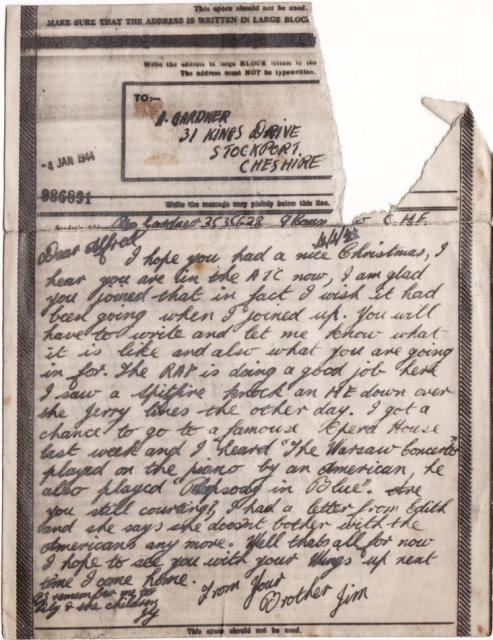 This space should not be used.
MAKE SURE THAT THE ADDRESS IS WRITTEN IN LARGE BLOC
Write the address in large BLOCK letters in the
The address must NOT be typewritten.
TO:—
A. GARDNER
31 KINGS DRIVE
STOCKPORT.
CHESHIRE
-4 JAN 1944
986891
Write the message very plainly below this line.
Gardner 3535628 C.M.F.
Dear Alfred
I hope you had a nice Christmas, I
hear you are in the ATC now, I am glad
you joined that in fact I wish it had
been going when I joined up. You will
have to write and let me know what
it is like and also what you are going
in for. The RAF is doing a good job here
I saw a Spitfire knock an ME down over
the Jerry lines the other day. I got a
chance to go to a famouse Opera House
last week and I heard "The Warsaw Concerto"
played on the piano by an American, he
also played "Rhapsody in Blue". Are
you still courting, I had a letter from Edith
and she says she doesnt bother with the
Americans any more. Well thats all for now
I hope to see you with your Wings up next
time I come home.
From Your
Brother Jim
PS remember me to
Lily & the children
This space should not be used.